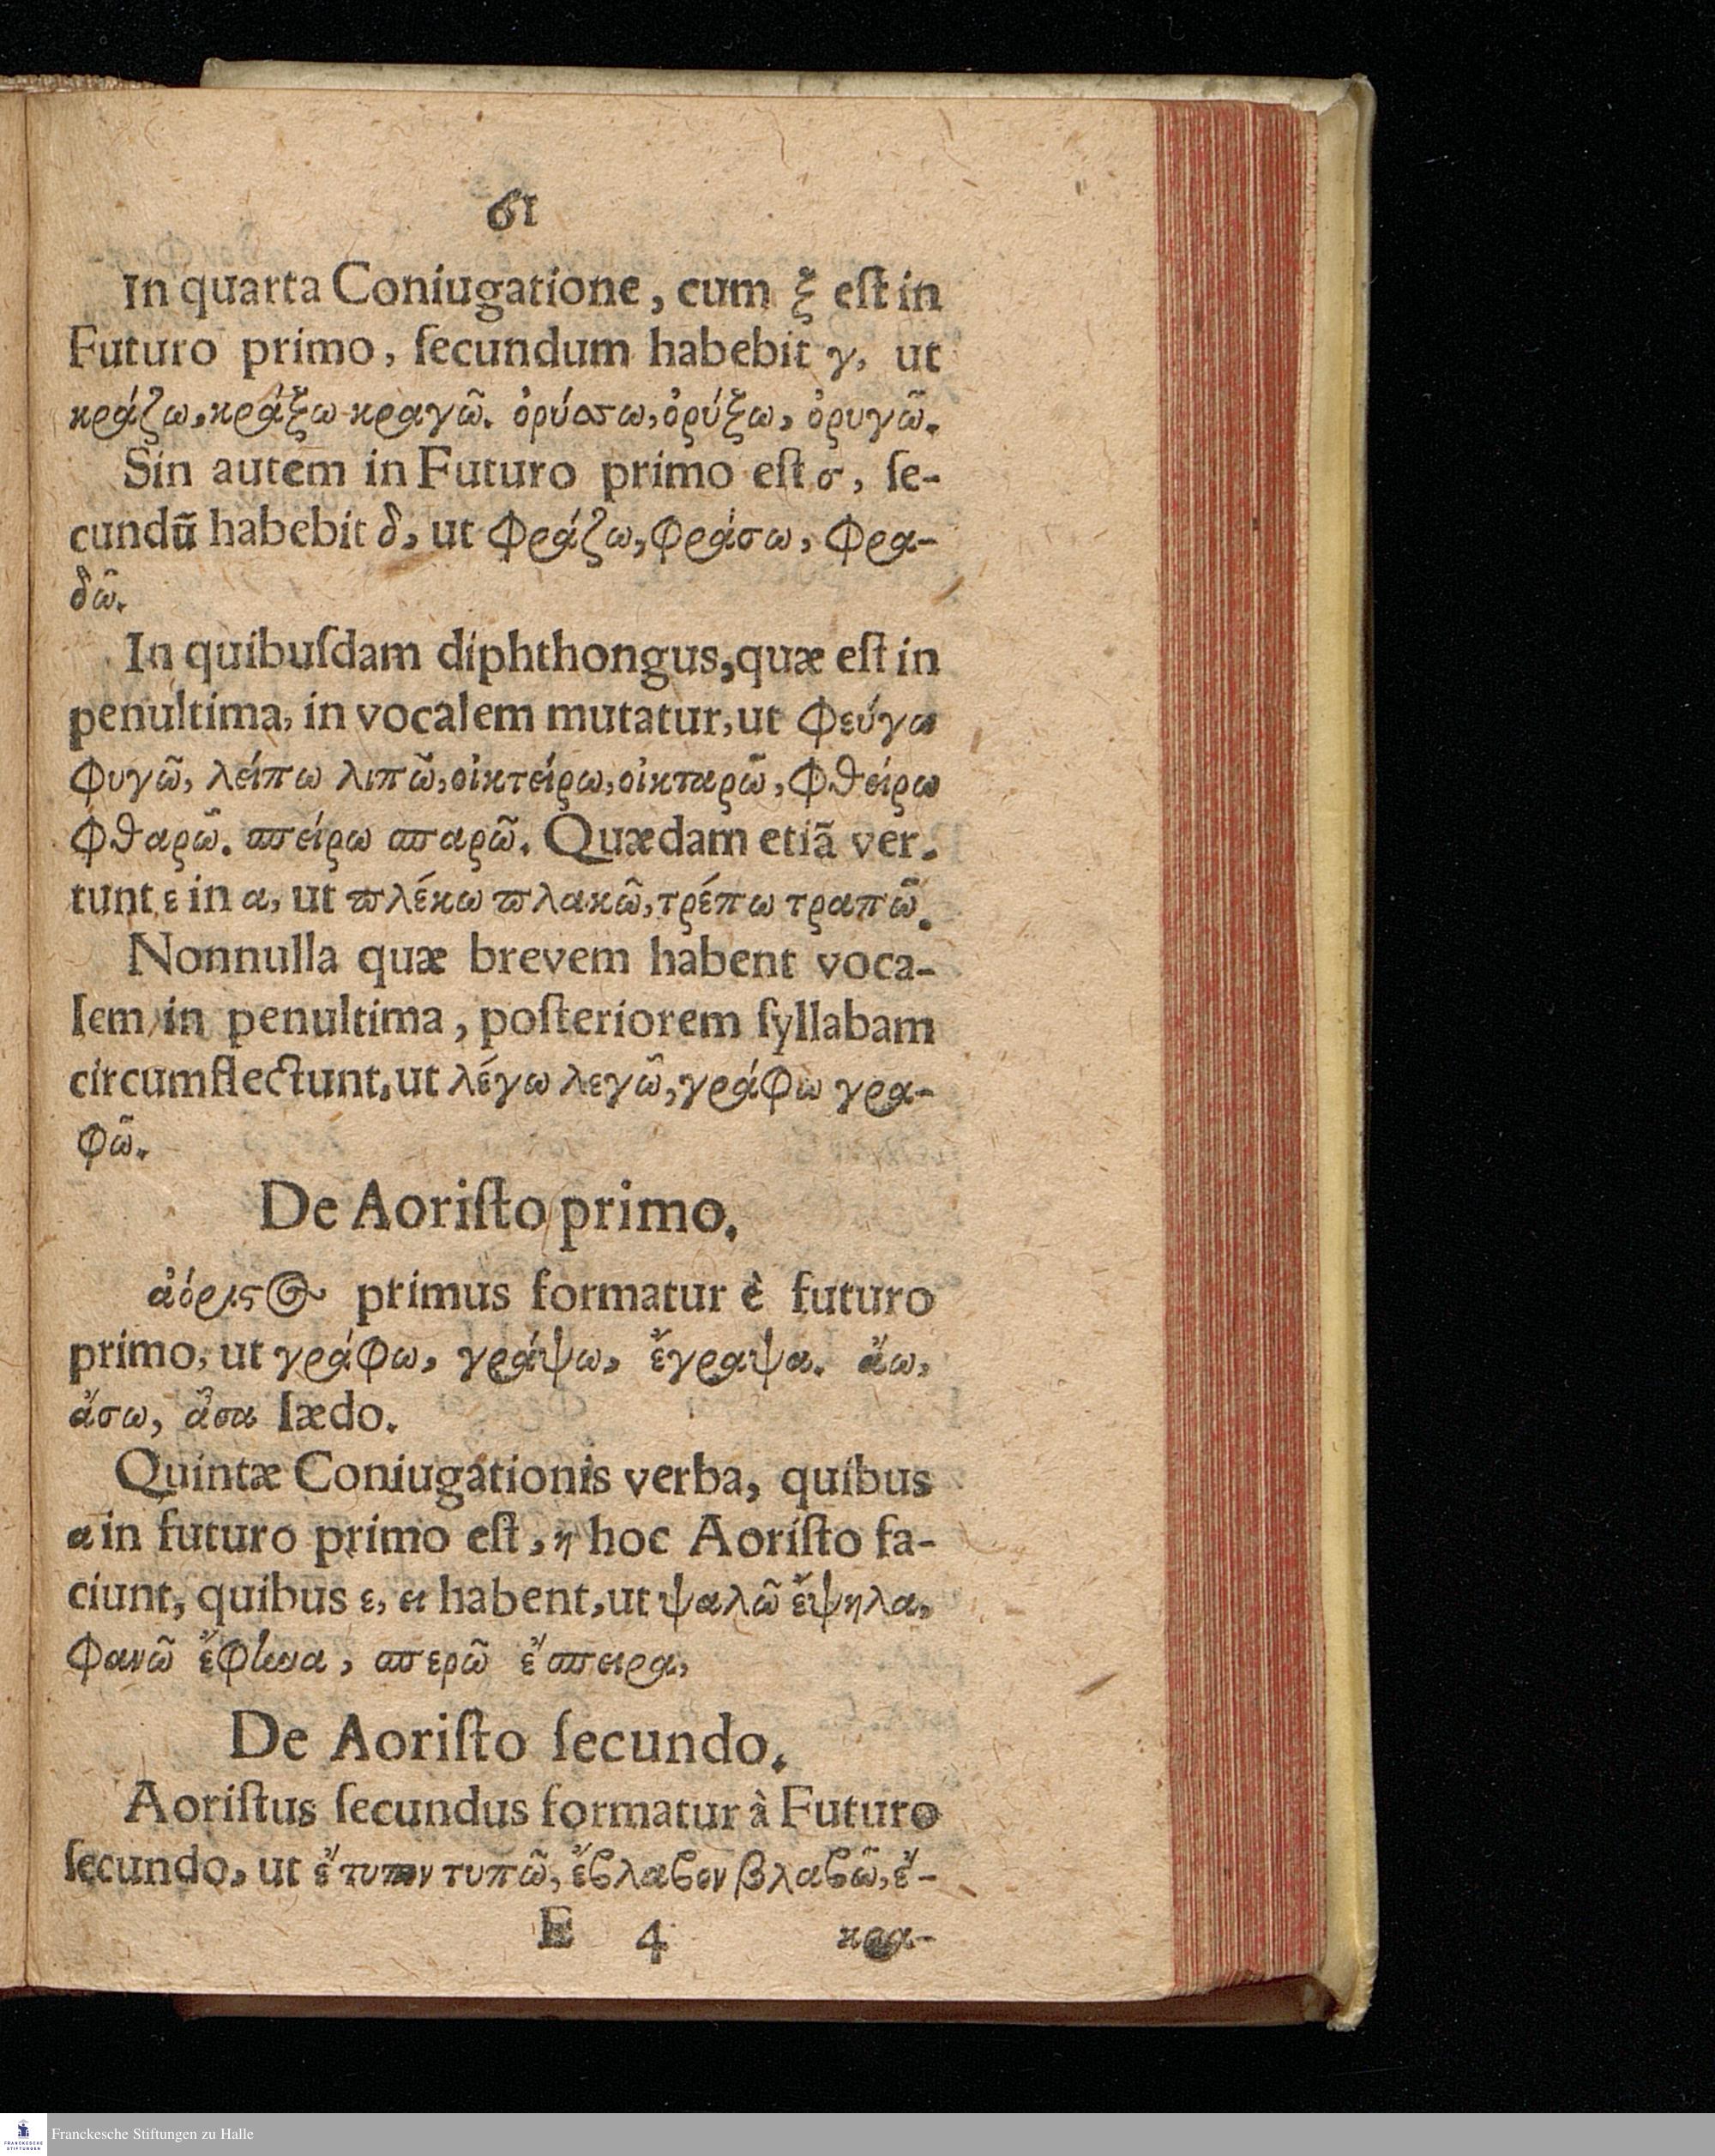 61
In quarta Coniugatione, cum ξ eſt in
Futuro primo, ſecundum habebit γ, ut
κράζω, κράξω κραγῶ. ὀρύσσω, ὀρύξω, ὀρυγῶ.
Sin autem in Futuro primo eſt σ, ſe-
cundũ habebit δ, ut φράζω, φράσω, φρα-
δῶ.
In quibuſdam diphthongus, quæ eſt in
penultima, in vocalem mutatur, ut φεύγω
φυγῶ, λείπω λιπῶ, οἰκτείρω, οἰκταρῶ, φθείρω
φθαρῶ. σπείρω σπαρῶ. Quædam etiã ver-
tunt ε in α, ut πλέκω πλακῶ, τρέπω τραπῶ.
Nonnulla quæ brevem habent voca-
lem in penultima, poſteriorem ſyllabam
circumflectunt, ut λέγω λεγῶ, γράφω γρα-
φῶ.
De Aoriſto primo.
ἀόριςος primus formatur è futuro
primo, ut γράφω, γράψω, ἔγραψα. ἄω,
ἄσω, ἆσα lædo.
Quintæ Coniugationis verba, quibus
α in futuro primo eſt, η hoc Aoriſto fa-
ciunt, quibus ε, ει habent, ut ψαλῶ ἔψηλα,
φανῶ ἔφηνα, σπερῶ ἔσπειρα,
De Aoriſto ſecundo.
Aoriſtus ſecundus formatur à Futuro
ſecundo, ut ἔτυπον τυπῶ, ἔϐλαϐον βλαϐῶ, ἔ-
E 4 κρα-
Franckesche Stiftungen zu Halle
FRANCKESCHE
STIFTUNGEN